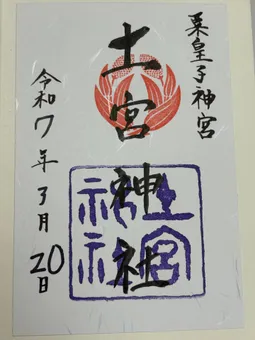 粟皇子神宮
土宮神社
土宮神社
令和7年3月20日